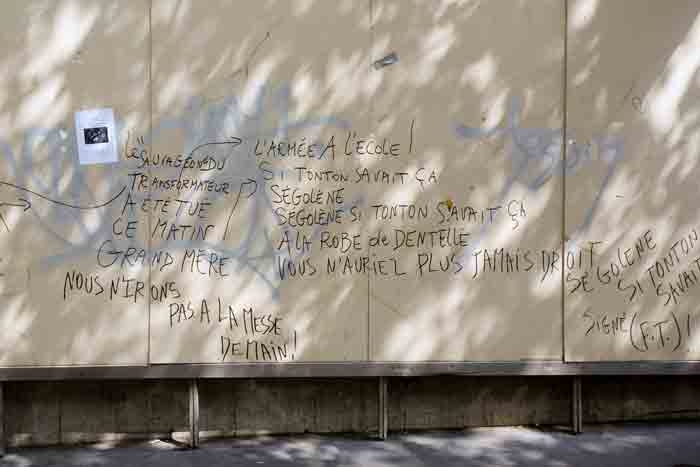 LE "SAUVAGEON" DU
TRANSFORMATEUR
A ÉTÉ TUÉ
CE MATIN
GRAND MÈRE
NOUS N'IRONS
PAS A LA MESSE
DEMAIN!
L'ARMÉE A L'ÉCOLE!
SI TONTON SAVAIT ÇA
SÉGOLÈNE
SÉGOLÈNE SI TONTON SAVAIT ÇA
A LA ROBE de DENTELLE
VOUS N'AURIEZ PLUS JAMAIS DROIT
SÉGOLÈNE
SI TONTON
SAVAIT
SIGNÉ (F.T.)!!